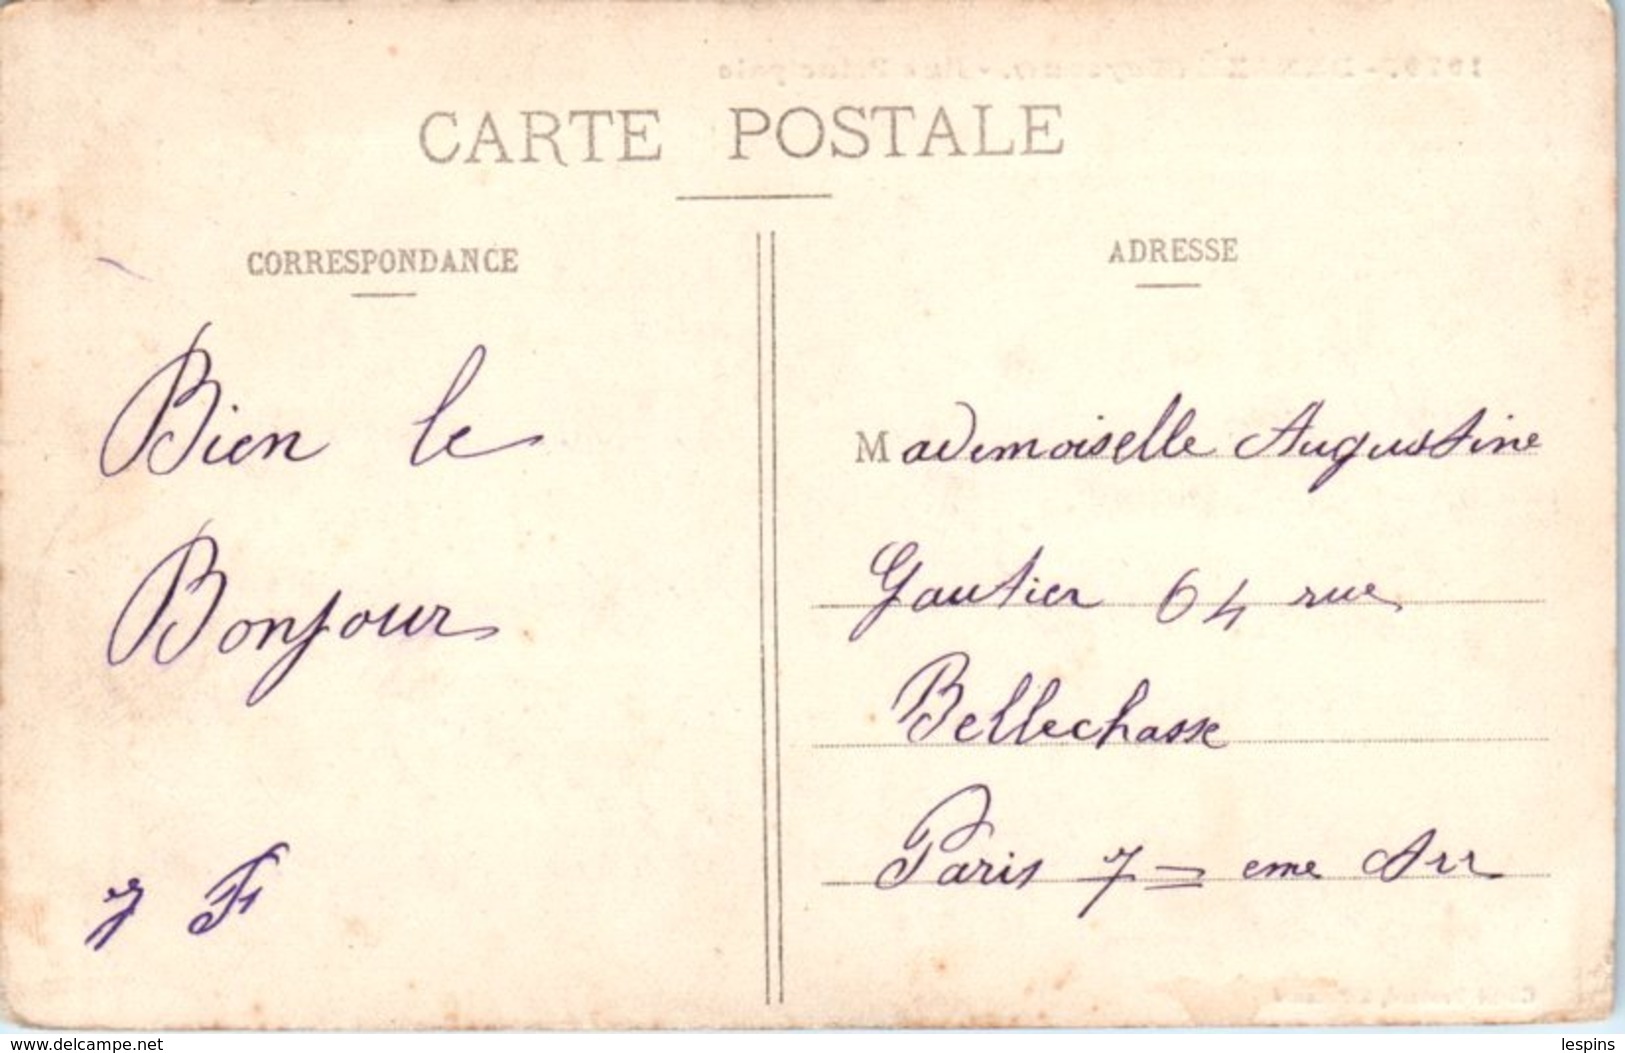 CARTE POSTALE
CORRESPONDANCE
Bien le
Bonjour
ADRESSE
Mademoiselle Augustine
Gautier 64 rue
Bellechasse
Paris 7 = eme Arr
www.delcampe.net
lespins